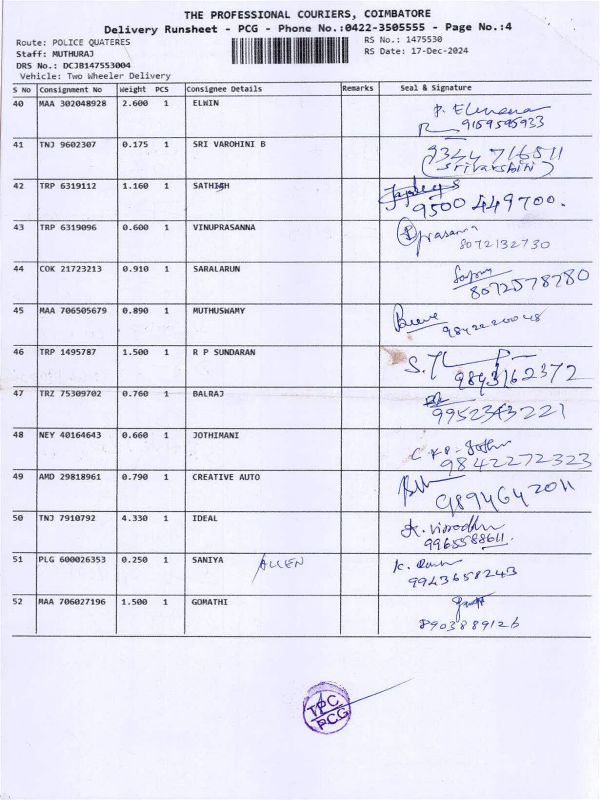 THE PROFESSIONAL COURIERS, COIMBATORE
Delivery Runsheet - PCG - Phone No.:0422-3505555 - Page No.:4
Route: POLICE QUATERES
RS No.: 1475530
Staff: MUTHURAJ
RS Date: 17-Dec-2024
DRS No.: DCJB147553004
Vehicle: Two Wheeler Delivery
S No Consignment No Weight PCS Consignee Details Remarks Seal & Signature
40 MAA 302048928 2.600 1 ELWIN
9159595933
41 TNJ 9602307 0.175 1 SRI VAROHINI B 9344 716511
(Srivarshini)
42 TRP 6319112 1.160 1 SATHISH
9500 449700.
43 TRP 6319096 0.600 1 VINUPRASANNA prasanna
8072132730
44 COK 21723213 0.910 1 SARALARUN
8072578780
45 MAA 706505679 0.890 1 MUTHUSWAMY
9842220048
46 TRP 1495787 1.500 1 R P SUNDARAN
9843162372
47 TRZ 75309702 0.760 1 BALRAJ
9952343221
48 NEY 40164643 0.660 1 JOTHIMANI
9842272323
49 AMD 29818961 0.790 1 CREATIVE AUTO
9894642011
50 TNJ 7910792 4.330 1 IDEAL
9965588611.
51 PLG 600026353 0.250 1 SANIYA ALLEN
9943658243
52 MAA 706027196 1.500 1 GOMATHI
8903889126
TPC
P.C.G